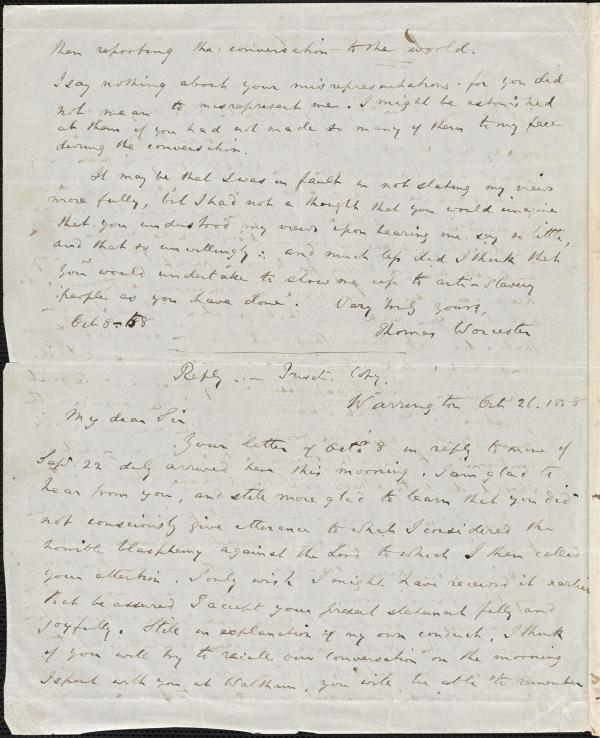 then reporting the conversation to the world.
I say nothing about your misrepresentations: for you did
not mean to misrepresent me. I might be astonished
at them if you had not made so many of them to my face
during the conversation.
It may be that I was in fault in not stating my views
more fully, but I had not a thought that you would imagine
that you understood my views upon hearing me say so little,
and that so unwillingly: and much less did I think that
you would undertake to show me up to anti-Slavery
people as you have done. Very truly yours,
Oct 8 - 58 Thomas Worcester
Reply - Private Copy.
Warrington Oct 26. 1858
My dear Sir
Your letter of Oct 8 in reply to mine of
Sept. 22 duly arrived here this morning. I am glad to
hear from you, and still more glad to learn that you did
not consciously give utterance to what I considered the
horrible blasphemy against the Lord to which I then called
your attention. I only wish I might have received it earlier
But be assured I accept your present statement fully and
joyfully. Still in explanation of my own conduct, I think
if you will try to recall our conversation on the morning
I spent with you at Waltham, you will be able to remember